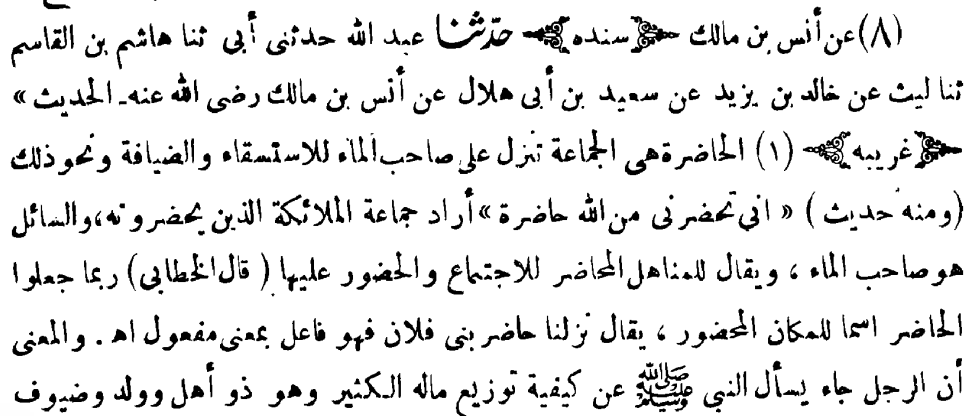 (٨) عن أنس بن مالك ﴿سنده﴾ حدّثنا عبد الله حدثنى أبى ثنا هاشم بن القاسم
ثنا ليث عن خالد بن يزيد عن سعيد بن أبى هلال عن أنس بن مالك رضى الله عنه ـ الحديث »
﴿غريبه﴾ (١) الحاضرة هى الجماعة تنزل على صاحب الماء للاستسقاء والضيافة ونحو ذلك
(ومنه حديث) « انى تحضرنى من الله حاضرة » أراد جماعة الملائكة الذين يحضرونه، والسائل
هو صاحب الماء ، ويقال للمناهل المحاضر للاجتماع والحضور عليها ( قال الخطابى) ربما جعلوا
الحاضر اسما للمكان المحضور ، يقال نزلنا حاضر بنى فلان فهو فاعل بمعنى مفعول اه . والمعنى
أن الرجل جاء يسأل النبى ﷺ عن كيفية توزيع ماله الكثير وهو ذو أهل وولد وضيوف